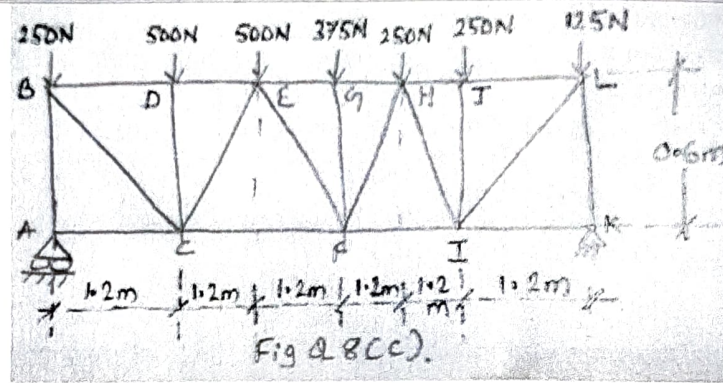 250N 500N 500N 375N 250N 250N 125N
B D E G H J L
0.6m
A C F I K
1.2m 1.2m 1.2m 1.2m 1.2m 1.2m
Fig Q 8(c).